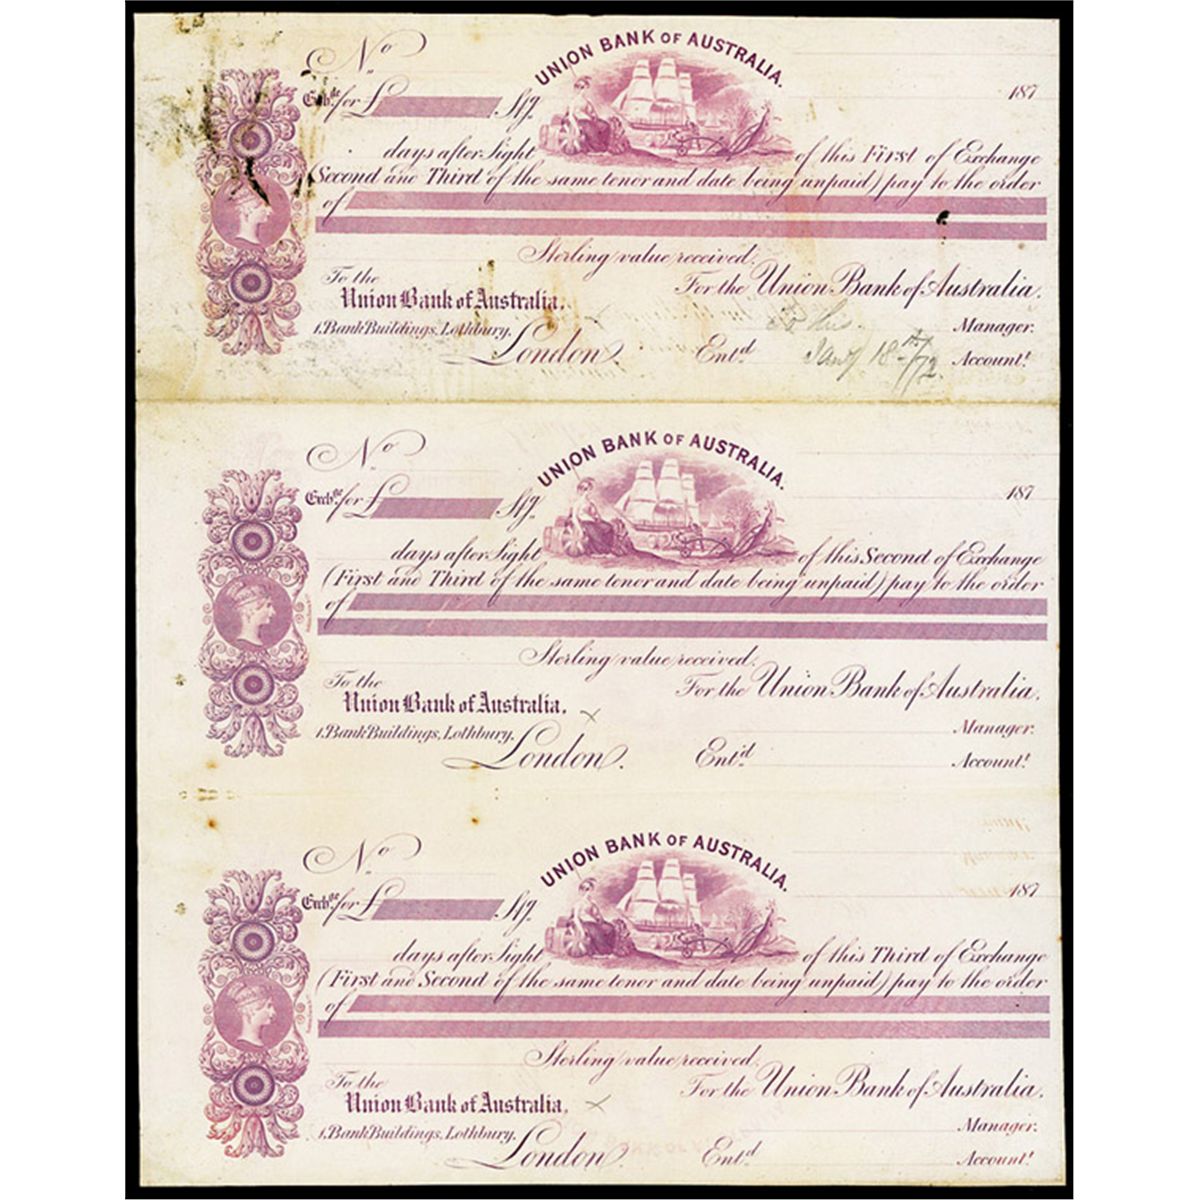 UNION BANK OF AUSTRALIA.
No
187
Exch.ge for £ Stg.
days after Sight of this First of Exchange
(Second and Third of the same tenor and date being unpaid) pay to the order
of
Sterling value received.
To the For the Union Bank of Australia.
Union Bank of Australia,
1, Bank Buildings, Lothbury, Manager.
London. Ent.d Jany 18th/72 Account.t
UNION BANK OF AUSTRALIA.
No
187
Exch.ge for £ Stg.
days after Sight of this Second of Exchange
(First and Third of the same tenor and date being unpaid) pay to the order
of
Sterling value received.
To the For the Union Bank of Australia.
Union Bank of Australia,
1, Bank Buildings, Lothbury, Manager.
London. Ent.d Account.t
UNION BANK OF AUSTRALIA.
No
187
Exch.ge for £ Stg.
days after Sight of this Third of Exchange
(First and Second of the same tenor and date being unpaid) pay to the order
of
Sterling value received.
To the For the Union Bank of Australia.
Union Bank of Australia,
1, Bank Buildings, Lothbury, Manager.
London. Ent.d Account.t